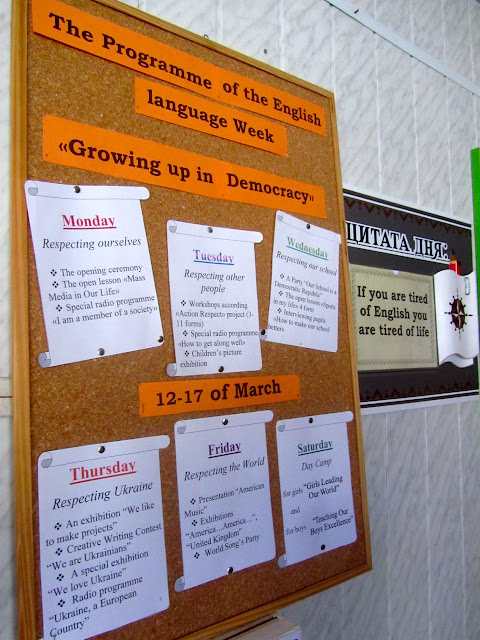 The Programme of the English
language Week
«Growing up in Democracy»
Monday
Respecting ourselves
❖ The opening ceremony
❖ The open lesson «Mass
Media in Our Life»
❖ Special radio programme
«I am a member of a society»
Tuesday
Respecting other
people
❖ Workshops according
«Action Respect» project (3-
11 forms)
❖ Special radio programme
«How to get along well»
❖ Children's picture
exhibition
Wednesday
Respecting our school
❖ A Party "Our School is a
Democratic Republic"
❖ The open lesson «Sports
in my life» 4 form
❖ Interviewing pupils
«How to make our school
better»
12-17 of March
Thursday
Respecting Ukraine
❖ An exhibition "We like
to make projects"
❖ Creative Writing Contest
"We are Ukrainians"
❖ A special exhibition
"We love Ukraine"
❖ Radio programme
"Ukraine, a European
Country"
Friday
Respecting the World
❖ Presentation "American
Music"
❖ Exhibitions
"America…America…",
"United Kingdom"
❖ World Song's Party
Saturday
Day Camp
for girls "Girls Leading
Our World"
and
for boys "Teaching Our
Boys Excellence"
ЦИТАТА ДНЯ:
If you are tired
of English you
are tired of life